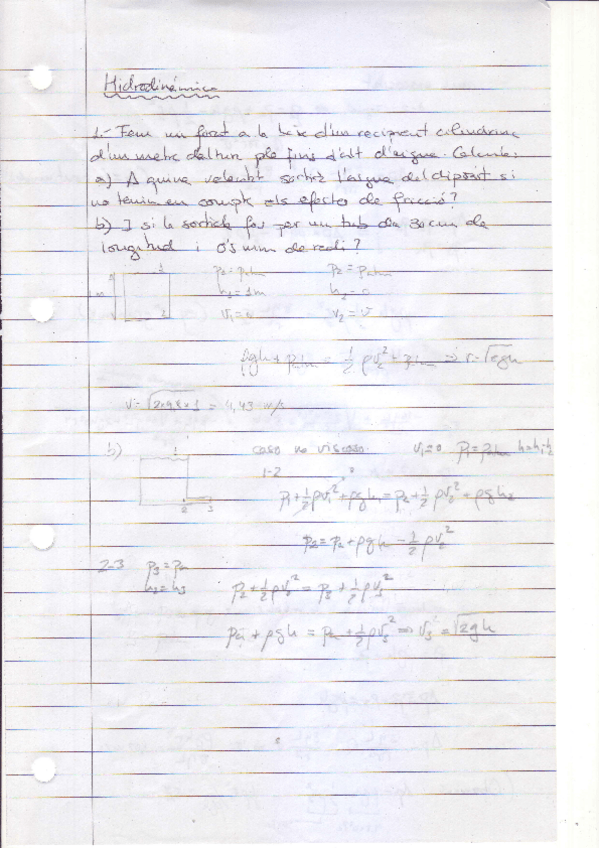 Hidrodinámica
1.- Fem un forat a la base d'un recipient cilindric
d'un metre d'altura ple fins d'alt d'aigua. Calcula:
a) A quina velocitat sortirà l'aigua del diposit si
no tenim en compte els efectes de fricció?
b) I si la sortida fos per un tub de 30 cm de
longitud i 0'5 mm de radi?
1 P₂ = Patm P₂ = Patm
1 m h₁ = 1m h₂ = 0
2 V₁ = 0 V₂ = ¿?
ρgh + Patm = 1/2 ρv₂² + Patm ⇒ v = √2gh
V = √2×9,8×1 = 4,43 m/s
b) 1 caso no viscoso. V₁=0 P₁ = Patm h=h₁-h₂
1-2
2 3 P₁ + 1/2 ρv₁² + ρgh₁ = P₂ + 1/2 ρv₂² + ρgh₂
P₂ = Pa + ρgh - 1/2 ρv₂²
2-3 P₃ = Pa
h₂ = h₃ P₂ + 1/2 ρv₂² = P₃ + 1/2 ρv₃²
Pa + ρgh = Pa + 1/2 ρv₃² ⇒ V₃ = √2gh